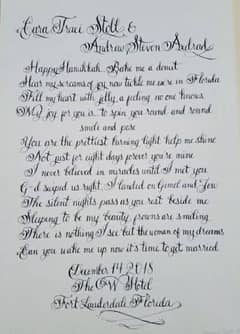 Cara Traci Stoll &
Andrew Steven Axelrad
Happy Hanukkah. Bake me a donut
Hear my screams of joy now tickle me were in Florida
Fill my heart with jelly, a feeling no one knows
My joy for you is... to spin you round and round
smile and pose
You are the prettiest burning light help me shine
Not just for eight days forever you're mine
I never believed in miracles until I met you
G-d swiped us right. I landed on Gimel and "Jew
The silent nights pass as you rest beside me
Sleeping to be my beauty frowns are smiling
There is nothing I see but the woman of my dreams
Can you wake me up now it's time to get married
December 14 2018
The W Hotel
Fort Lauderdale Florida